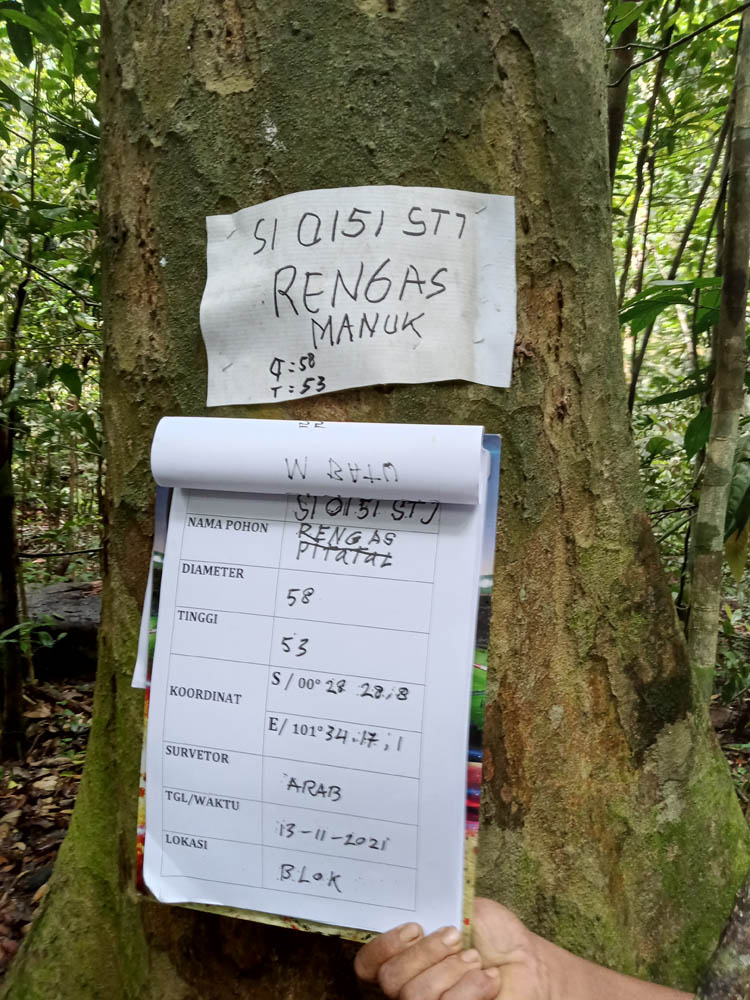 SI 0151 STJ
RENGAS
MANUK
d=58
T=53
SI 0151 STJ
NAMA POHON RENGAS
DIAMETER 58
TINGGI 53
KOORDINAT S / 00° 28 28,8
E/ 101° 34.17,1
SURVETOR ARAB
TGL/WAKTU 13-11-2021
LOKASI BLOK